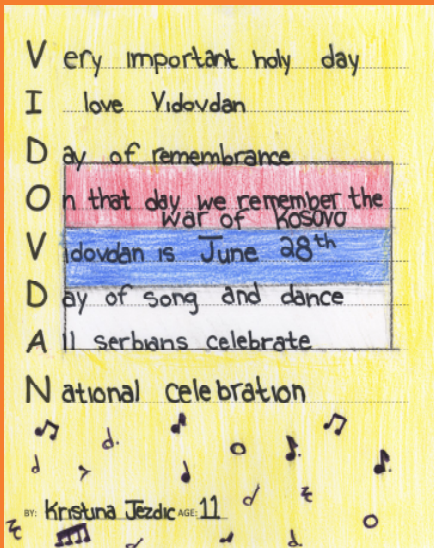 Very important holy day
I love Vidovdan
Day of remembrance
On that day we remember the
war of Kosovo
Vidovdan is June 28th
Day of song and dance
All serbians celebrate
National celebration
BY: Kristina Jezdic AGE: 11